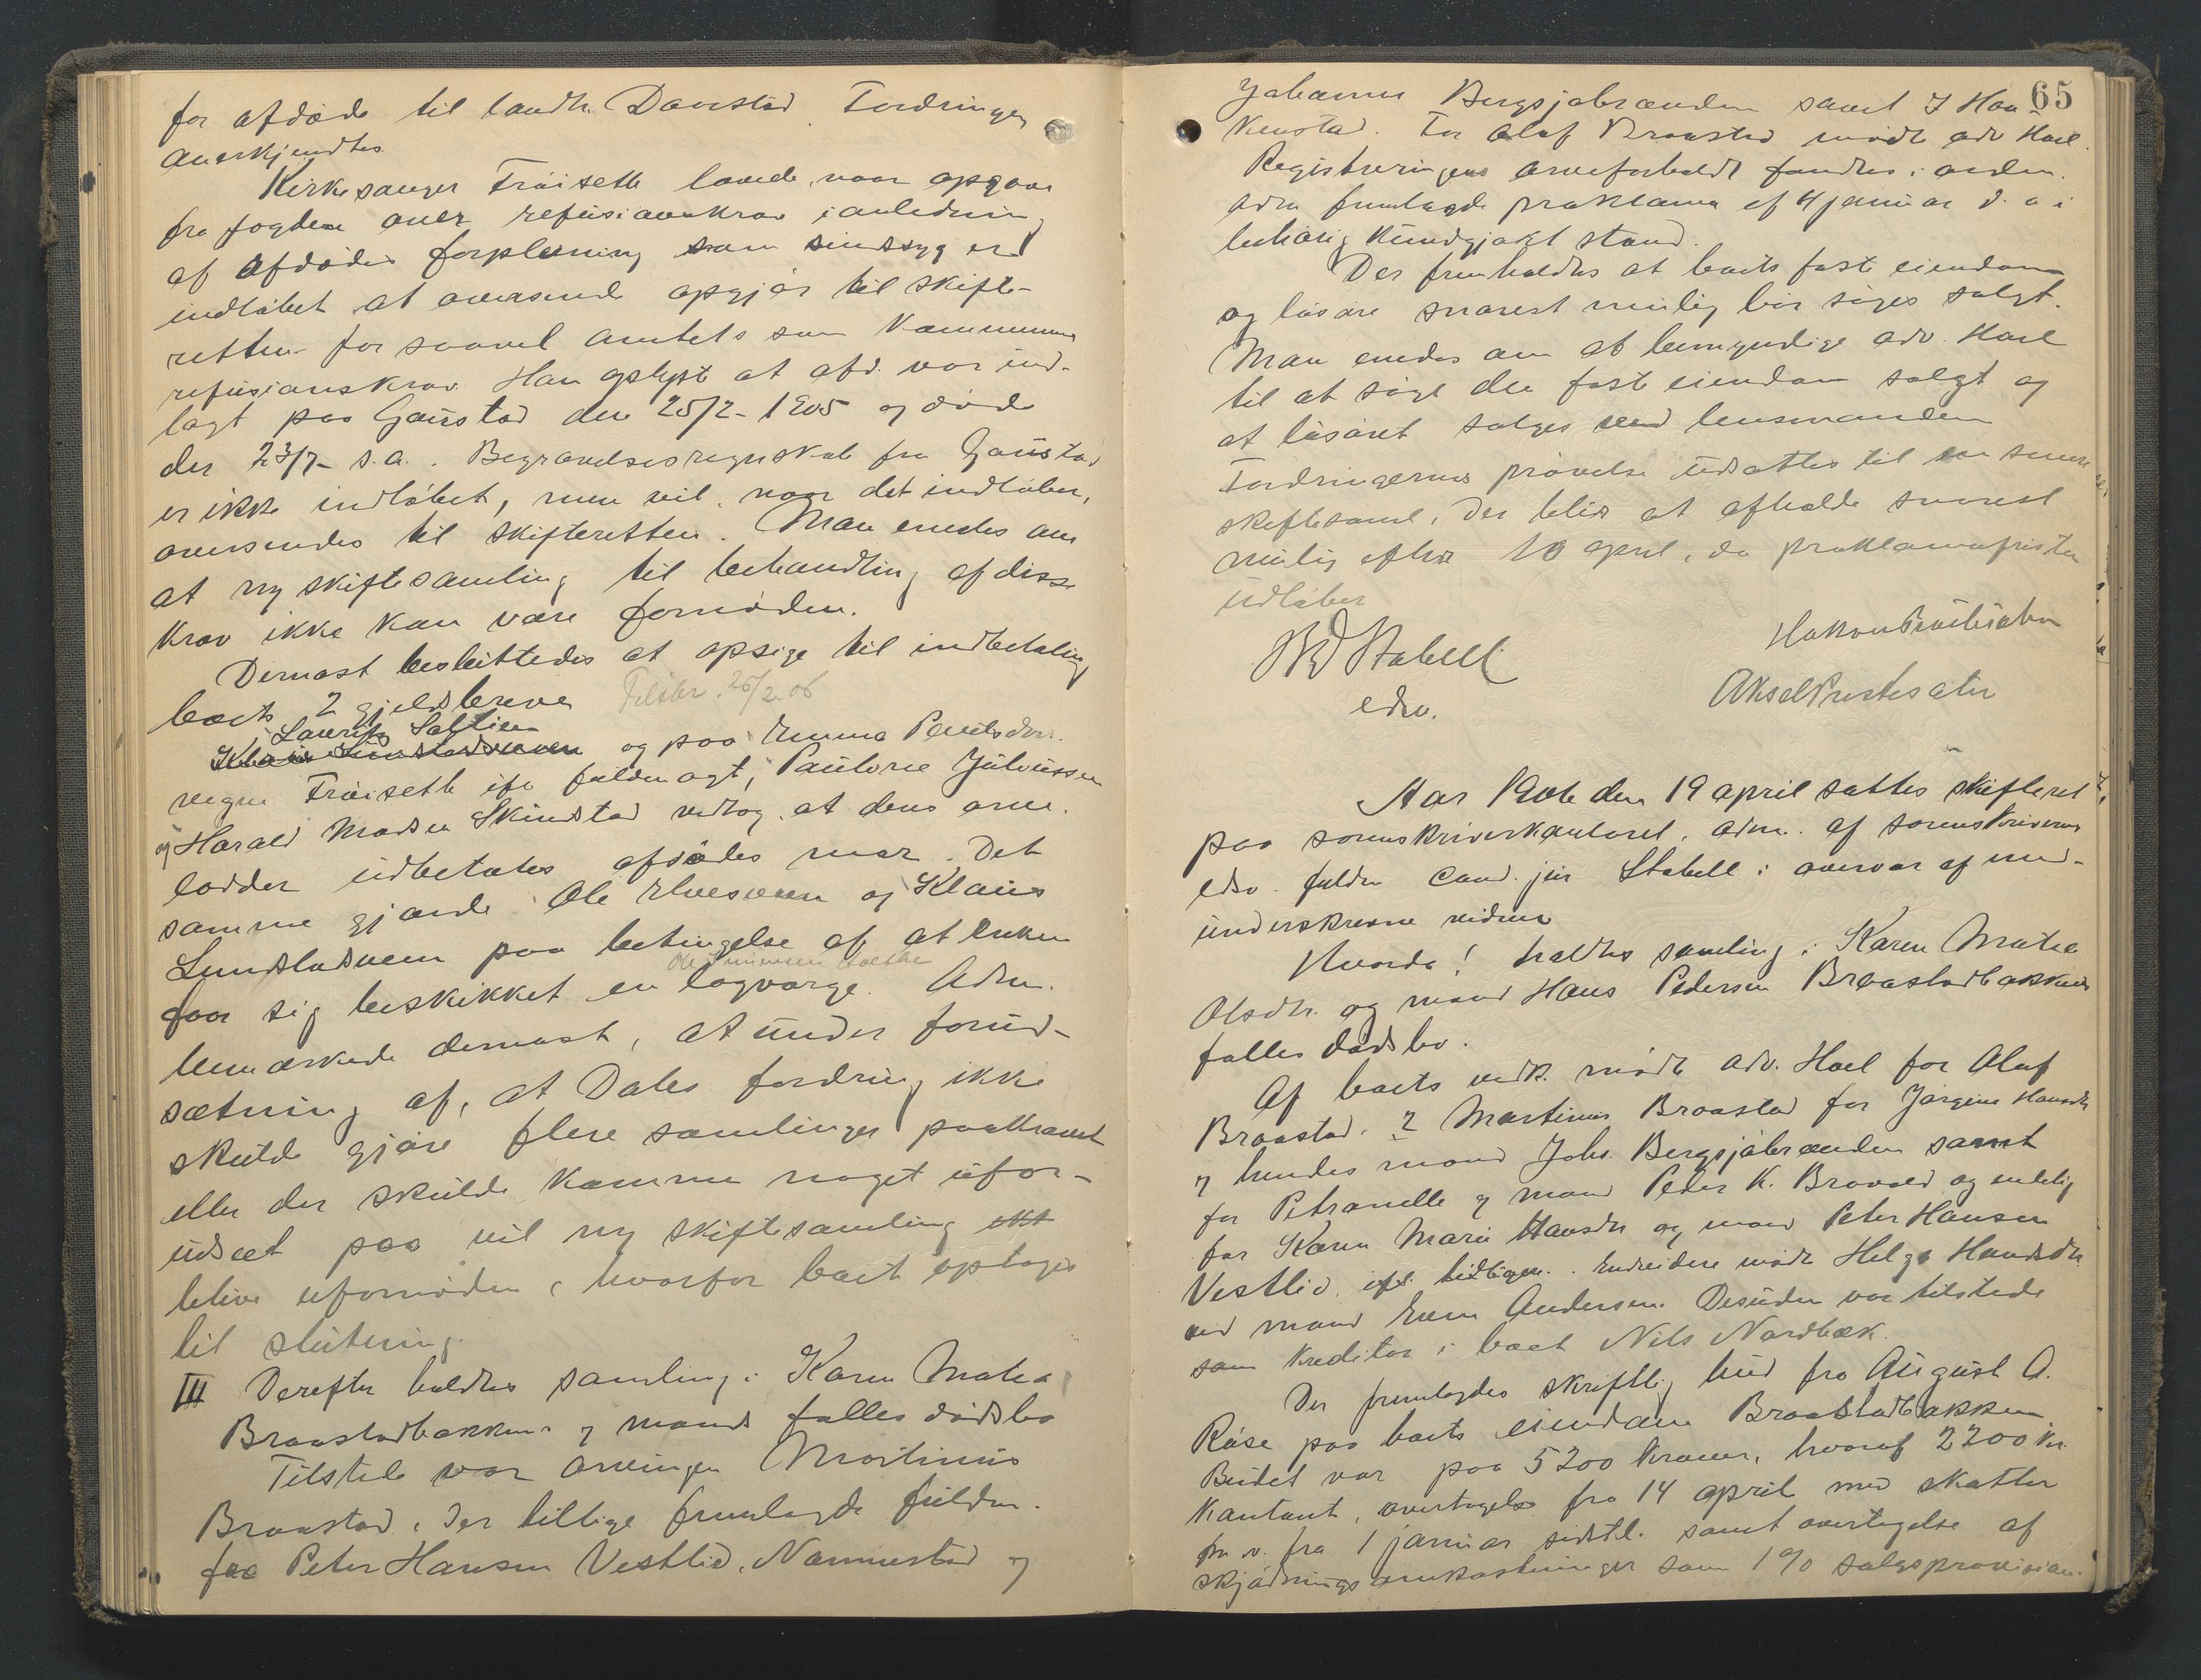 for afdøde til landh. Daarstad. Fordringen
anerkjendtes.
Kirkesanger Frøisett lovede, naar opgave
fra fogden over refusionskrav i anledning
af afdødes forpleining som sindssyg er
indløbet at oversende opgjør til skifte-
retten for saavel amtets som kommunens
refusionskrav. Han oplyste at afd. var ind-
lagt paa Gaustad den 25/2- 1905 og døde
der 23/7- s.a. Begravelsesregnskab fra Gaustad
er ikke indløbet, men vil, naar det indløber,
oversendes til skifteretten. Man enedes om
at ny skiftesamling til behandling af disse
krav ikke kan være fornøden.
Dernæst besluttedes at opsige til indbetaling
boets 2 gjeldsbreve Tilskr. 26/2.06
Laurits
og paa Emma Paulsdtrs.
vegne Frøisett ifø fuldmagt, Pauline Juliussen
og Harald Madsen Skindstad vedtog at dens arve-
lodder udbetales afdødes mor. Det
samme gjorde Ole Elvesveen og Klaus
Lundstadsveen paa betingelse af at enken
Ole
faar sig beskikket en lagværge. Adm.
bemærkede dernæst, at under forud-
sætning af, at Dales fordring ikke
skulde gjøre flere samlinger paakrævet
eller der skulde komme noget ufor-
udseet paa vil ny skiftesamling ikke
blive ufornøden, hvorfor boet optoges
til slutning.
III Derefter holdtes samling i Karen Mathea
Braastadbakkens og mands fælles dødsbo
Tilstede var arvingen Martinus
Braastad, der tillige fremlagde fuldm.
fra Peter Hansen Vestlie, Nannestad og
65
Johannes Bergsjøbrænden samt
For Olaf Braastad mødte adv Hoel.
Registreringens arveforhold fandtes i orden.
Adm fremlagde proklama af 4 januar d. a i
behørig kundgjort stand.
Der fremholdtes at boets faste eiendom
og løsøre snarest mulig bør søges solgt.
Man enedes om at bemyndige adv. Hoel
til at søge den faste eiendom solgt og
at løsøret sælges ved lensmanden
Fordringernes prøvelse udsattes til en senere
skiftesaml. der blir at afholde snarest
mulig efter 10 april, da proklamafristen
udløber
Stabell
edsv.
Aksel Prestesæter
Aar 1906 den 19 april sattes skifteret
paa sorenskriverkontoret, adm. af sorenskriverens
edsv. fuldm cand. jur Stabell i overvær af med-
underskrevne vidner
Hvorda! holdtes samling i Karen Mathea
Olsdtr. og mand Hans Pedersen Braastadbakkens
fælles dødsbo.
Af boets vedk. mødte adv. Hoel for Olaf
Braastad. 2 Martinus Braastad for Jørgine Hansdtr
og hendes mand Johs. Bergsjøbrænden samt
for Petronelle og mand Peder K. Bravold og endelig
for Karen Marie Hansdtr og mand Peter Hansen
Vestlie, ifø tidligere. Endvidere mødte Helga Hansdtr
ved mand Even Andersen. Desuden var tilstede
som kreditor i boet Nils Nordbæk.
Der fremlagdes skriftlig bud fra August A.
Røise paa boets eiendom Braastadbakken
Budet var paa 5200 kroner, hvoraf 2200 kr.
kontant, overtagelse fra 14 april med skatter
m. v. fra 1 januar sidstl. samt overtagelse af
skjødningsomkostninger som 1 % salgsprovision.